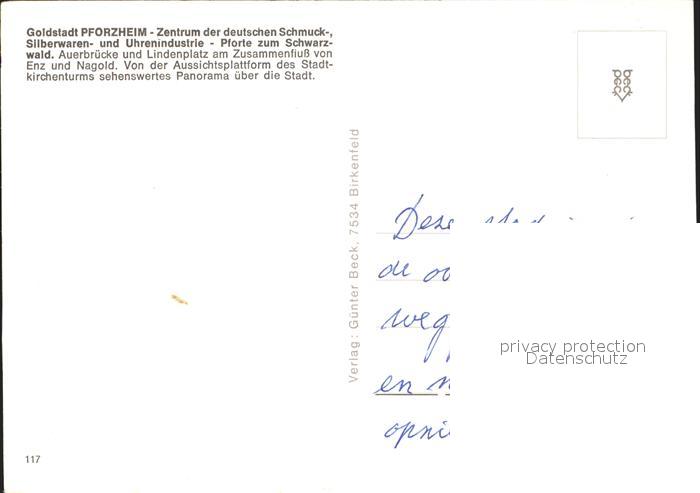 Goldstadt PFORZHEIM - Zentrum der deutschen Schmuck-,
Silberwaren- und Uhrenindustrie - Pforte zum Schwarz-
wald. Auerbrücke und Lindenplatz am Zusammenfluß von
Enz und Nagold. Von der Aussichtsplattform des Stadt-
kirchenturms sehenswertes Panorama über die Stadt.
Verlag: Günter Beck, 7534 Birkenfeld
de
weg
en
privacy protection
Datenschutz
117